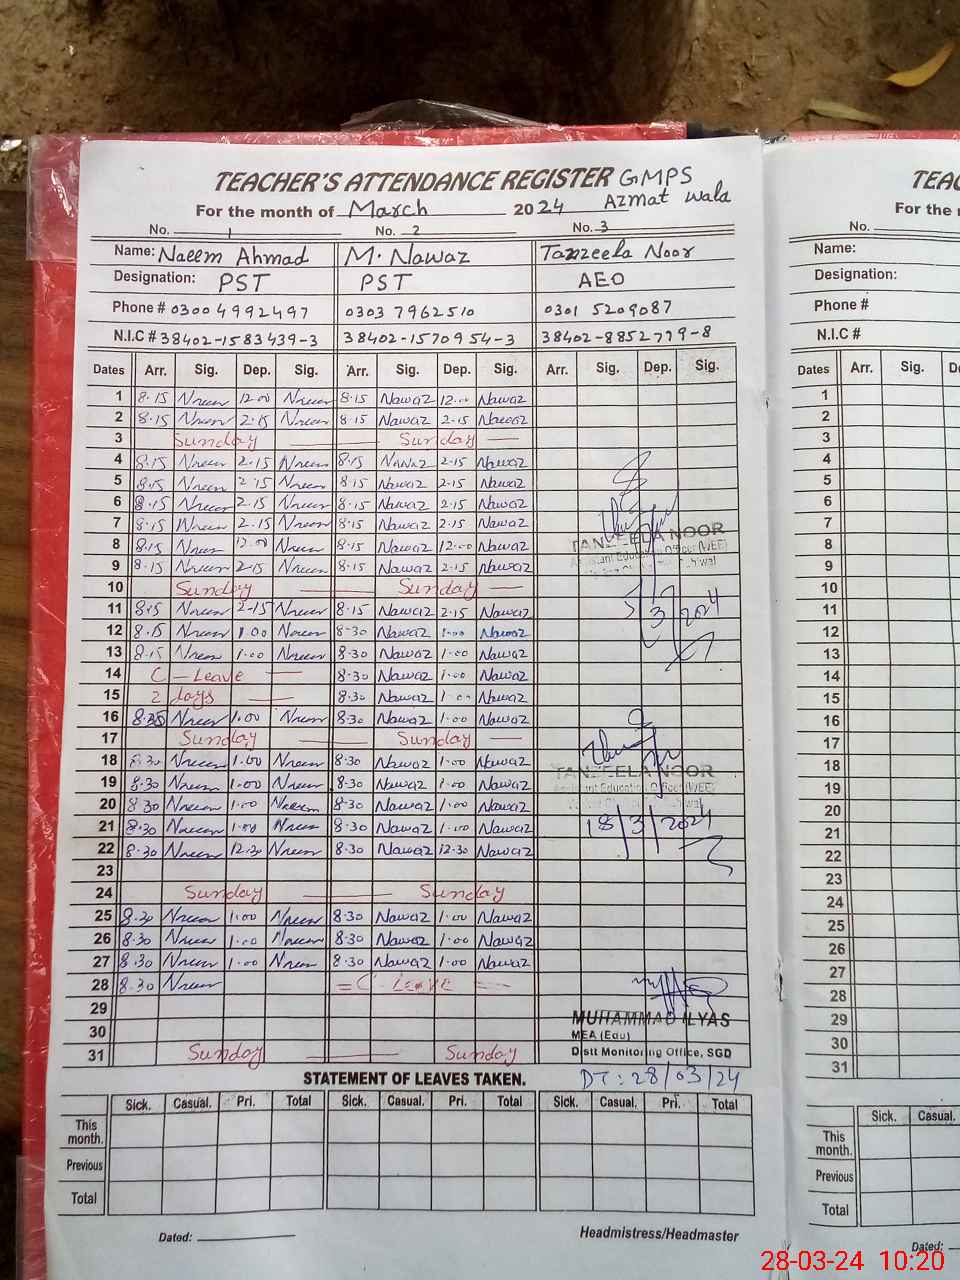 TEACHER'S ATTENDANCE REGISTER GMPS
For the month of March 2024 Azmat wala
No. 1 No. 2 No. 3
Name: Naeem Ahmad M. Nawaz Tanzeela Noor
Designation: PST PST AEO
Phone # 0300 4992497 0303 7962510 0301 5209087
N.I.C # 38402-1583439-3 38402-1570954-3 38402-8852779-8
Dates Arr. Sig. Dep. Sig. Arr. Sig. Dep. Sig. Arr. Sig. Dep. Sig.
1 8.15 Naeem 12.00 Naeem 8.15 Nawaz 12.00 Nawaz
2 8.15 Naeem 2.15 Naeem 8.15 Nawaz 2.15 Nawaz
3 Sunday Sunday
4 8.15 Naeem 2.15 Naeem 8.15 Nawaz 2.15 Nawaz
5 8.15 Naeem 2.15 Naeem 8.15 Nawaz 2.15 Nawaz
6 8.15 Naeem 2.15 Naeem 8.15 Nawaz 2.15 Nawaz
7 8.15 Naeem 2.15 Naeem 8.15 Nawaz 2.15 Nawaz
TANZEELA NOOR
8 8.15 Naeem 12.00 Naeem 8.15 Nawaz 12.00 Nawaz
Assistant Education Officer (WEE)
9 8.15 Naeem 2.15 Naeem 8.15 Nawaz 2.15 Nawaz
10 Sunday Sunday
11 8.15 Naeem 2.15 Naeem 8.15 Nawaz 2.15 Nawaz /3/2024
12 8.15 Naeem 1.00 Naeem 8.30 Nawaz 1.00 Nawaz
13 8.15 Naeem 1.00 Naeem 8.30 Nawaz 1.00 Nawaz
14 C - Leave 8.30 Nawaz 1.00 Nawaz
15 2 days 8.30 Nawaz 1.00 Nawaz
16 8.35 Naeem 1.00 Naeem 8.30 Nawaz 1.00 Nawaz
17 Sunday Sunday
18 8.30 Naeem 1.00 Naeem 8.30 Nawaz 1.00 Nawaz
TANZEELA NOOR
19 8.30 Naeem 1.00 Naeem 8.30 Nawaz 1.00 Nawaz
Assistant Education Officer (WEE)
20 8.30 Naeem 1.00 Naeem 8.30 Nawaz 1.00 Nawaz
21 8.30 Naeem 1.00 Naeem 8.30 Nawaz 1.00 Nawaz 18/3/2024
22 8.30 Naeem 12.30 Naeem 8.30 Nawaz 12.30 Nawaz
23
24 Sunday Sunday
25 8.30 Naeem 1.00 Naeem 8.30 Nawaz 1.00 Nawaz
26 8.30 Naeem 1.00 Naeem 8.30 Nawaz 1.00 Nawaz
27 8.30 Naeem 1.00 Naeem 8.30 Nawaz 1.00 Nawaz
28 8.30 Naeem = C - Leave
29 MUHAMMAD ILYAS
30 MEA (Edu)
31 Sunday Sunday Distt Monitoring Office, SGD
STATEMENT OF LEAVES TAKEN. DT: 28/03/24
Sick. Casual. Pri. Total Sick. Casual. Pri. Total Sick. Casual. Pri. Total
This month.
Previous
Total
Dated: Headmistress/Headmaster
TEAC
For the
No.
Name:
Designation:
Phone #
N.I.C #
Dates Arr. Sig. De
1
2
3
4
5
6
7
8
9
10
11
12
13
14
15
16
17
18
19
20
21
22
23
24
25
26
27
28
29
30
31
Sick. Casual.
This month.
Previous
Total
Dated:
28-03-24 10:20